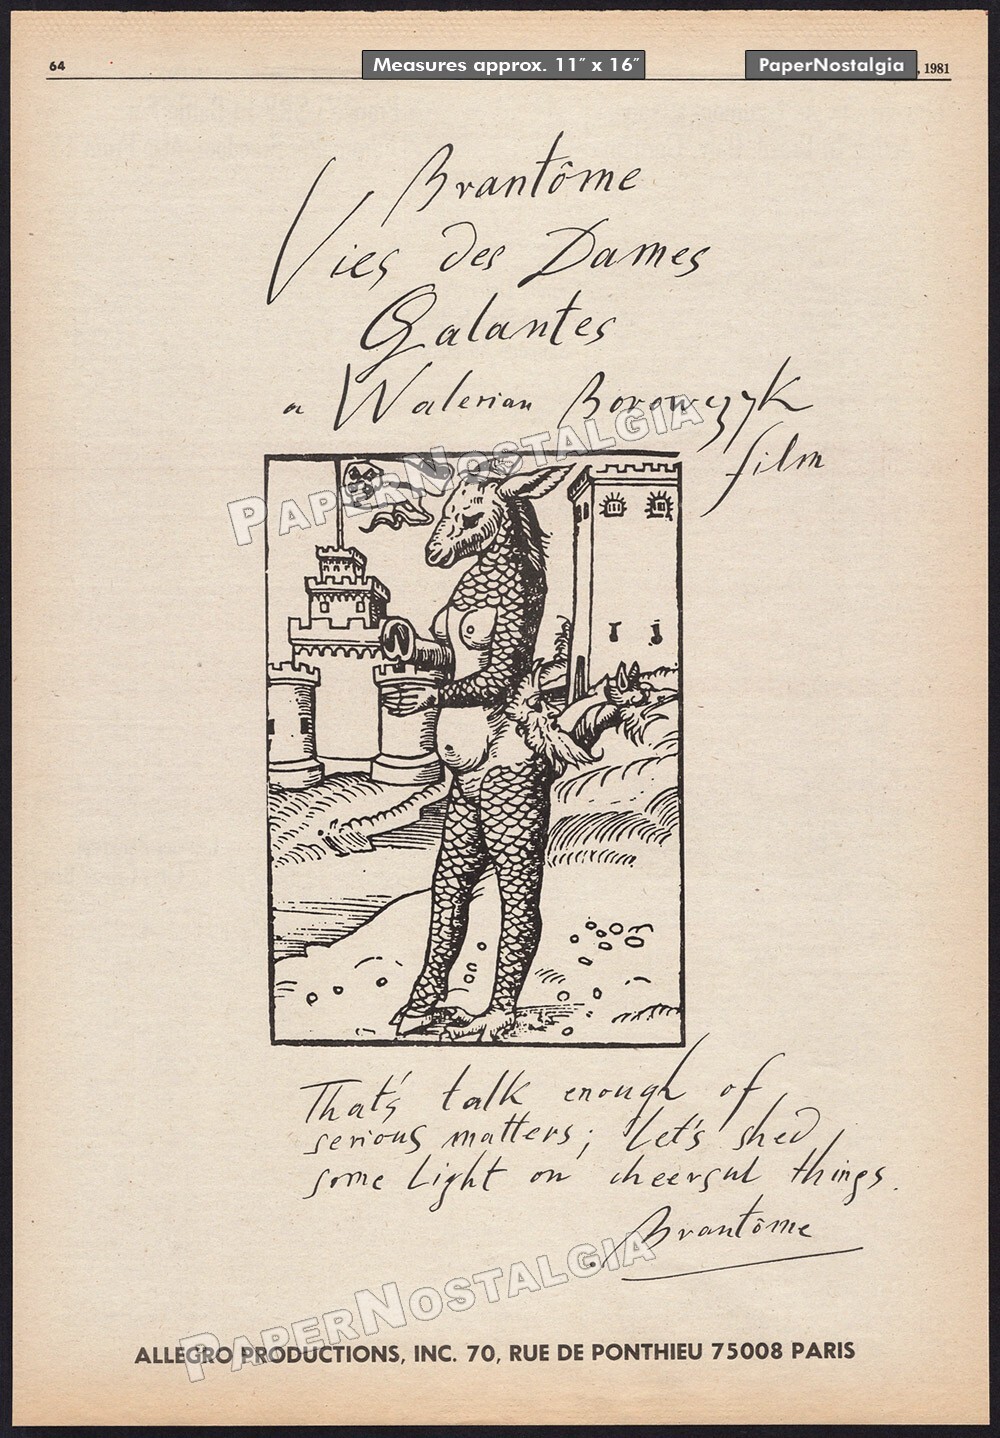 64
Measures approx. 11″ x 16″
PaperNostalgia
, 1981
Brantôme
Vies des Dames
Galantes
a Walerian Borowczyk
film
PAPERNOSTALGIA
That's talk enough of
serious matters; let's shed
some light on cheerful things.
Brantôme
PAPERNOSTALGIA
ALLEGRO PRODUCTIONS, INC. 70, RUE DE PONTHIEU 75008 PARIS